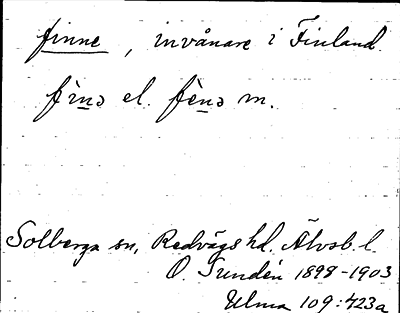 finne, invånare i Finland
fìnə el. fènə m.
Solberga sn, Redvägs hd. Älvsb. l.
O. Sundén 1898-1903
Ulma 109:423a